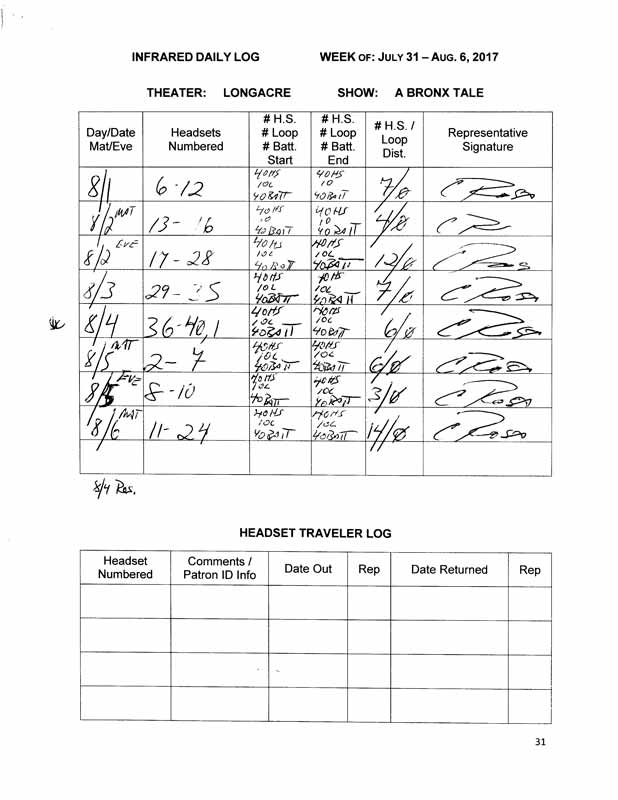 INFRARED DAILY LOG WEEK OF: JULY 31 – AUG. 6, 2017
THEATER: LONGACRE SHOW: A BRONX TALE
Day/Date Mat/Eve Headsets Numbered # H.S. # Loop # Batt. Start # H.S. # Loop # Batt. End # H.S. / Loop Dist. Representative Signature
8/1 6-12 40HS 10L 40BATT 40HS 10 40BATT 7/0 C Rosa
8/2 MAT 13- 16 40HS 10 40BATT 40HS 10 40BATT 4/0 C R
8/2 EVE 17-28 40HS 10L 40BATT 40HS 10L 40BATT 12/0 C Rosa
8/3 29-35 40HS 10L 40BATT 40HS 10L 40BATT 7/0 C Rosa
8/4 36-40,1 40HS 10L 40BATT 40HS 10L 40BATT 6/0 C Rosa
8/5 MAT 2-7 40HS 10L 40BATT 40HS 10L 40BATT 6/0 C Rosa
8/5 EVE 8-10 40HS 10L 40BATT 40HS 10L 40BATT 3/0 C Rosa
8/6 MAT 11-24 40HS 10L 40BATT 40HS 10L 40BATT 14/0 C Rosa
8/4 Res.
HEADSET TRAVELER LOG
Headset Numbered Comments / Patron ID Info Date Out Rep Date Returned Rep
31